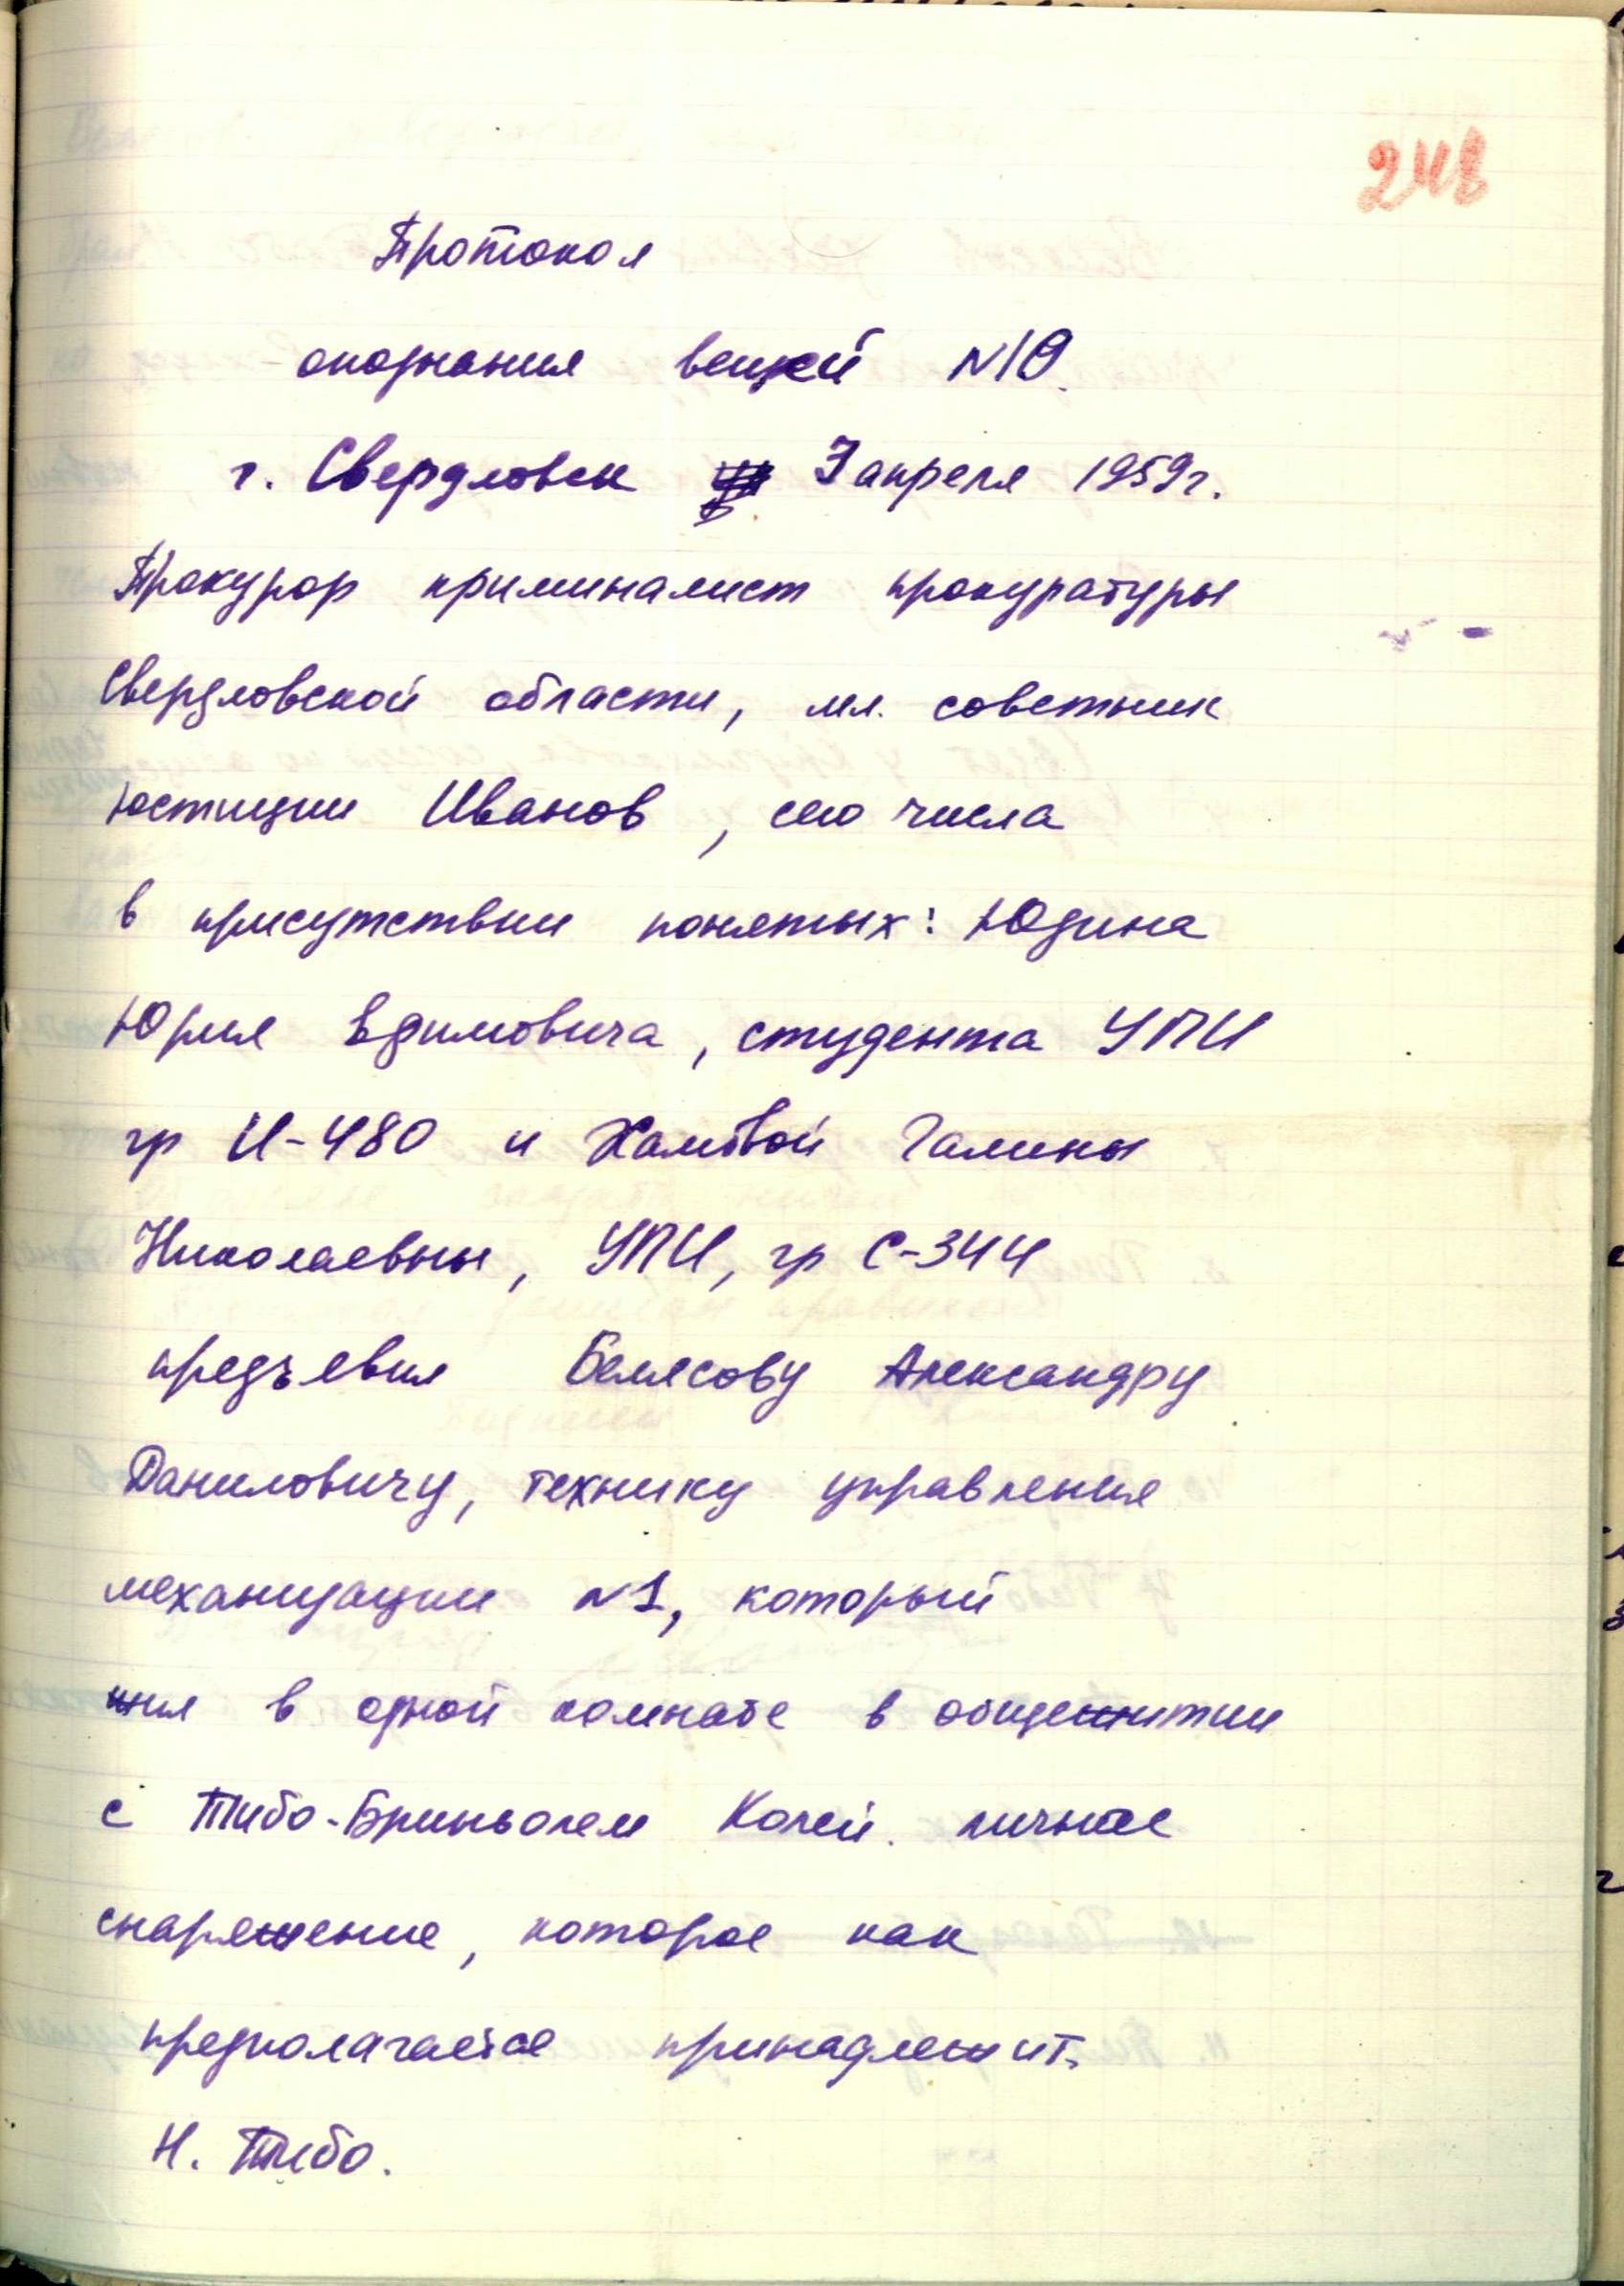 248
Протокол
опознания вещей N10
г. Свердловск 7 апреля 1959г.
Прокурор криминалист прокуратуры
Свердловской области, мл. советник
юстиции Иванов, сего числа
в присутствии понятых: Юдина
Юрия Вдимовича, студента УПИ
гр И-480 и Хамовой Галины
Николаевны, УПИ, гр С-344
предъявил Белясову Александру
Даниловичу, технику управления
механизации N1, который
жил в одной комнате в общежитии
с Тибо-Бриньолем Колей. личное
снаряжение, которое как
предполагается принадлежит.
Н. Тибо.